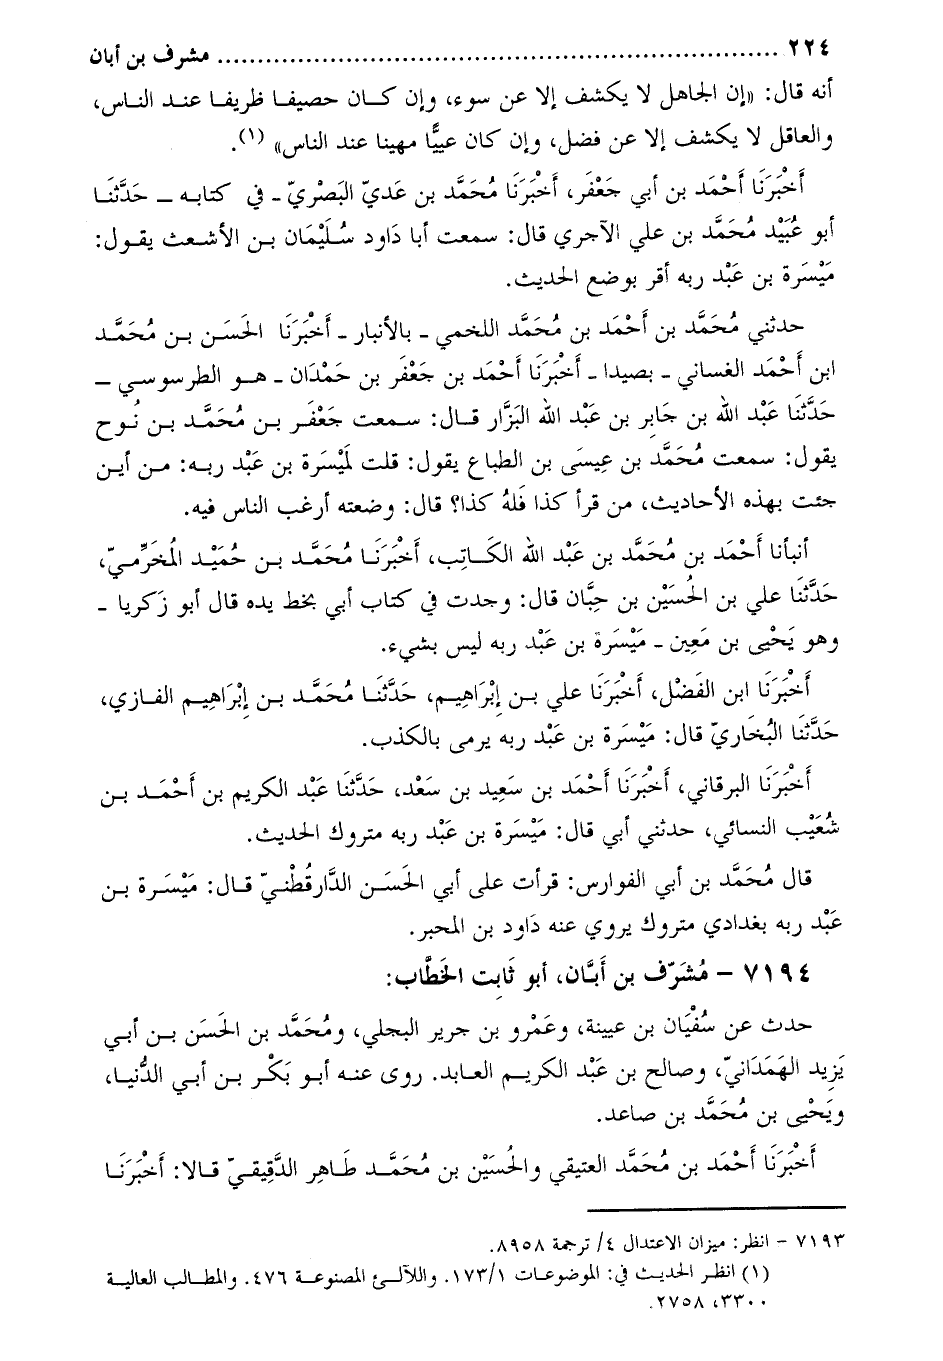 ٢٢٤ ........................................................................ مشرف بن أبان
أنه قال: «إن الجاهل لا يكشف إلا عن سوء، وإن كـان حصيفـا ظريفـا عنـد النـاس،
والعاقل لا يكشف إلا عن فضل، وإن كان عييًّا مهينا عند الناس» (١).
أَخْبَرَنَا أَحْمَد بن أبي جَعْفَر، أَخْبَرَنَا مُحَمَّد بن عَديّ البَصْريّ ـ في كتابـه ـ حَدَّثَنـا
أبو عُبَيْد مُحَمَّد بن علي الآجري قال: سمعت أبا دَاود سُـلَيْمَان بـن الأشـعث يقـول:
مَيْسَرَة بن عَبْد ربه أقر بوضع الحديث.
حدثني مُحَمَّد بن أَحْمَد بن مُحَمَّد اللخمي ـ بالأنبار ـ أَخْبَرَنَا الحَسَن بـن مُحَمَّـد
ابن أَحْمَد الغساني ـ بصيدا ـ أَخْبَرَنَا أَحْمَد بن جَعْفَر بن حَمْدَان ـ هـو الطرسوسي ـ
حَدَّثَنَا عَبْد الله بن جَابِر بن عَبْد الله البَزَّار قـال: سـمعت جَعْفَـر بـن مُحَمَّـد بـن نُـوح
يقول: سمعت مُحَمَّد بن عِيسَى بن الطباع يقول: قلت لمَيْسَرة بن عَبْد ربـه: مـن أيـن
جئت بهذه الأحاديث، من قرأ كذا فَلهُ كذا؟ قال: وضعته أرغب الناس فيه.
أنبأنا أَحْمَد بن مُحَمَّد بن عَبْد الله الكَـاتِب، أَخْبَرَنَـا مُحَمَّـد بـن حُمَيْـد المُخَرِّمـيّ،
حَدَّثَنَا علي بن الحُسَيْن بن حِبَّان قال: وجدت في كتاب أبي بخط يده قال أبو زَكَريا ـ
وهو يَحْيى بن مَعِين ـ مَيْسَرَة بن عَبْد ربه ليس بشيء.
أَخْبَرَنَا ابن الفَضْل، أَخْبَرَنَا علي بـن إبْرَاهِيـم، حَدَّثَنَـا مُحَمَّـد بـن إبْرَاهِيـم الفـازي،
حَدَّثَنَا البُخَاريّ قال: مَيْسَرة بن عَبْد ربه يرمى بالكذب.
أَخْبَرَنَا البرقاني، أَخْبَرَنَا أَحْمَد بن سَعِيد بن سَعْد، حَدَّثَنَا عَبْد الكريم بن أَحْمَـد بـن
شُعَيْب النسائي، حدثني أبي قال: مَيْسَرَة بن عَبْد ربه متروك الحديث.
قال مُحَمَّد بن أبي الفوارس: قرأت على أبي الحَسَـن الدَّارقُطْنـيّ قـال: مَيْسَـرة بـن
عَبْد ربه بغدادي متروك يروي عنه دَاود بن المحبر.
٧١٩٤ - مُشَرّف بن أَبَان، أبو ثَابِت الخَطَّاب:
حدث عن سُفْيَان بن عيينة، وعَمْرو بن جرير البجلي، ومُحَمَّد بن الحَسَن بـن أبي
يَزِيد الهَمَدَانيّ، وصالح بن عَبْد الكريم العابد. روى عنه أبـو بَكْر بـن أبـي الدُّنيـا،
ويَحْيى بن مُحَمَّد بن صاعد.
أَخْبَرَنَا أَحْمَد بن مُحَمَّد العتيقي والحُسَيْن بن مُحَمَّـد طَـاهِر الدَّقِيقيّ قـالا: أَخْبَرَنَـا
٧١٩٣ - انظر: ميزان الاعتدال ٤/ ترجمة ٨٩٥٨.
(١) انظـر الحديـث في: الموضوعـات ١٧٣/١. واللآلـئ المصنوعـة ٤٧٦. والمطـالب العاليـة
٣٣٠٠، ٢٧٥٨.